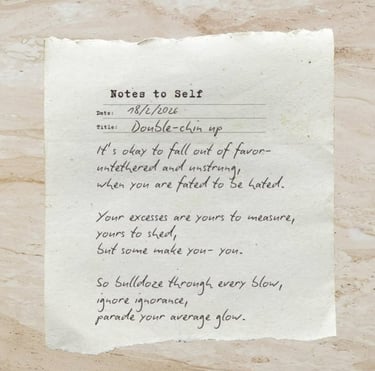 Notes to Self
Date: 18/2/2026
Title: Double-chin up
It's okay to fall out of favor-
untethered and unstrung,
when you are fated to be hated.
Your excesses are yours to measure,
yours to shed,
but some make you- you.
So bulldoze through every blow,
ignore ignorance,
parade your average glow.